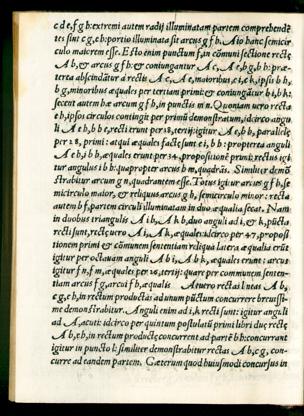 c d e, f g b: extremi autem radij illuminatam partem comprehendē
tes sint c g, e b: portio illuminata sit arcus g f b. Aio hanc semicir
culo maiorem esse. Esto enim punctum f, in cōmuni sectione rectę
A b, & arcus g f b: & coniungantur A c, A e, b g, b b: prę-
terea abscindātur à rectis A c, A e, maioribus, c i, e k, ipsis b b,
b g, minoribus æquales per tertiam primi: & coniungātur b i, b k:
secent autem hæ arcum g f b, in punctis m n. Quoniam uero recta
e b, ipsos circulos contingit per primū demonstratum, idcirco angu
li A e b, b b e, recti erunt per 18, tertij: igitur A e, b b, parallelę
per 28, primi: atqui æquales factę sunt e i, b b: propterea anguli
A e b, i b b, æquales erunt per 34, propositionē primi: rectus igi
tur angulus i b b: quapropter arcus b m, quadrās. Similiter demō
strabitur arcum g n, quadrantem esse. Totus igitur arcus g f b, se
micirculo maior, & reliquus arcus g b, semicirculo minor: recta
autem b f, partem circuli illuminatam in duo æqualia secat. Nam
in duobus triangulis A i b, A k b, duo anguli ad i, & k, pūcta,
recti sunt, rectę uero A i, A k, æquales: idcirco per 47, proposi
tionem primi & cōmunem sententiam reliqua latera æqualia erūt
igitur per octauam anguli A b i, A b k, æquales erunt: arcus
igitur f n, f m, æquales per 26, tertij: quare per communem senten-
tiam arcus f g, arcui f b, æqualis. At uero rectas lineas A b,
c g, e b, in rectum productas ad unum pūctum concurrere breuissi-
me demonstrabitur. Anguli enim ad i, k recti sunt: igitur anguli
ad A, acuti: idcirco per quintum postulatū primi libri duę rectę
A b, e b, in rectum productę concurrent ad partē b b: concurrant
igitur in puncto l: similiter demonstrabitur rectas A b, c g, con-
curre ad eandem partem. Cæterum quod huiusmodi concursus in